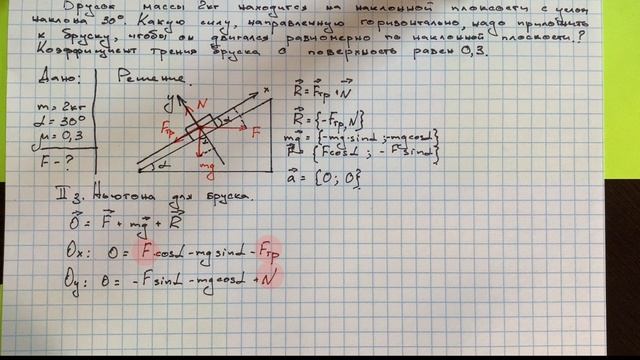 Брусок массы 2кг находится на наклонной плоскости с углом
наклона 30°. Какую силу, направленную горизонтально, надо приложить
к бруску, чтобы он двигался равномерно по наклонной плоскости.?
Коэффициент трения бруска о поверхность равен 0,3.
Дано:
m = 2кг
α = 30°
μ = 0,3
F - ?
Решение.
y
N
x
Fтр
F
α
α
mg
α
R⃗ = F⃗тр + N⃗
R⃗ = {-Fтр, N}
mg⃗ = {-mg·sinα; -mgcosα}
F⃗ = {Fcosα; -F·sinα}
a⃗ = {0; 0}
II З. Ньютона для бруска.
0⃗ = F⃗ + mg⃗ + R⃗
Ox: 0 = Fcosα - mgsinα - Fтр
Oy: 0 = -Fsinα - mgcosα + N